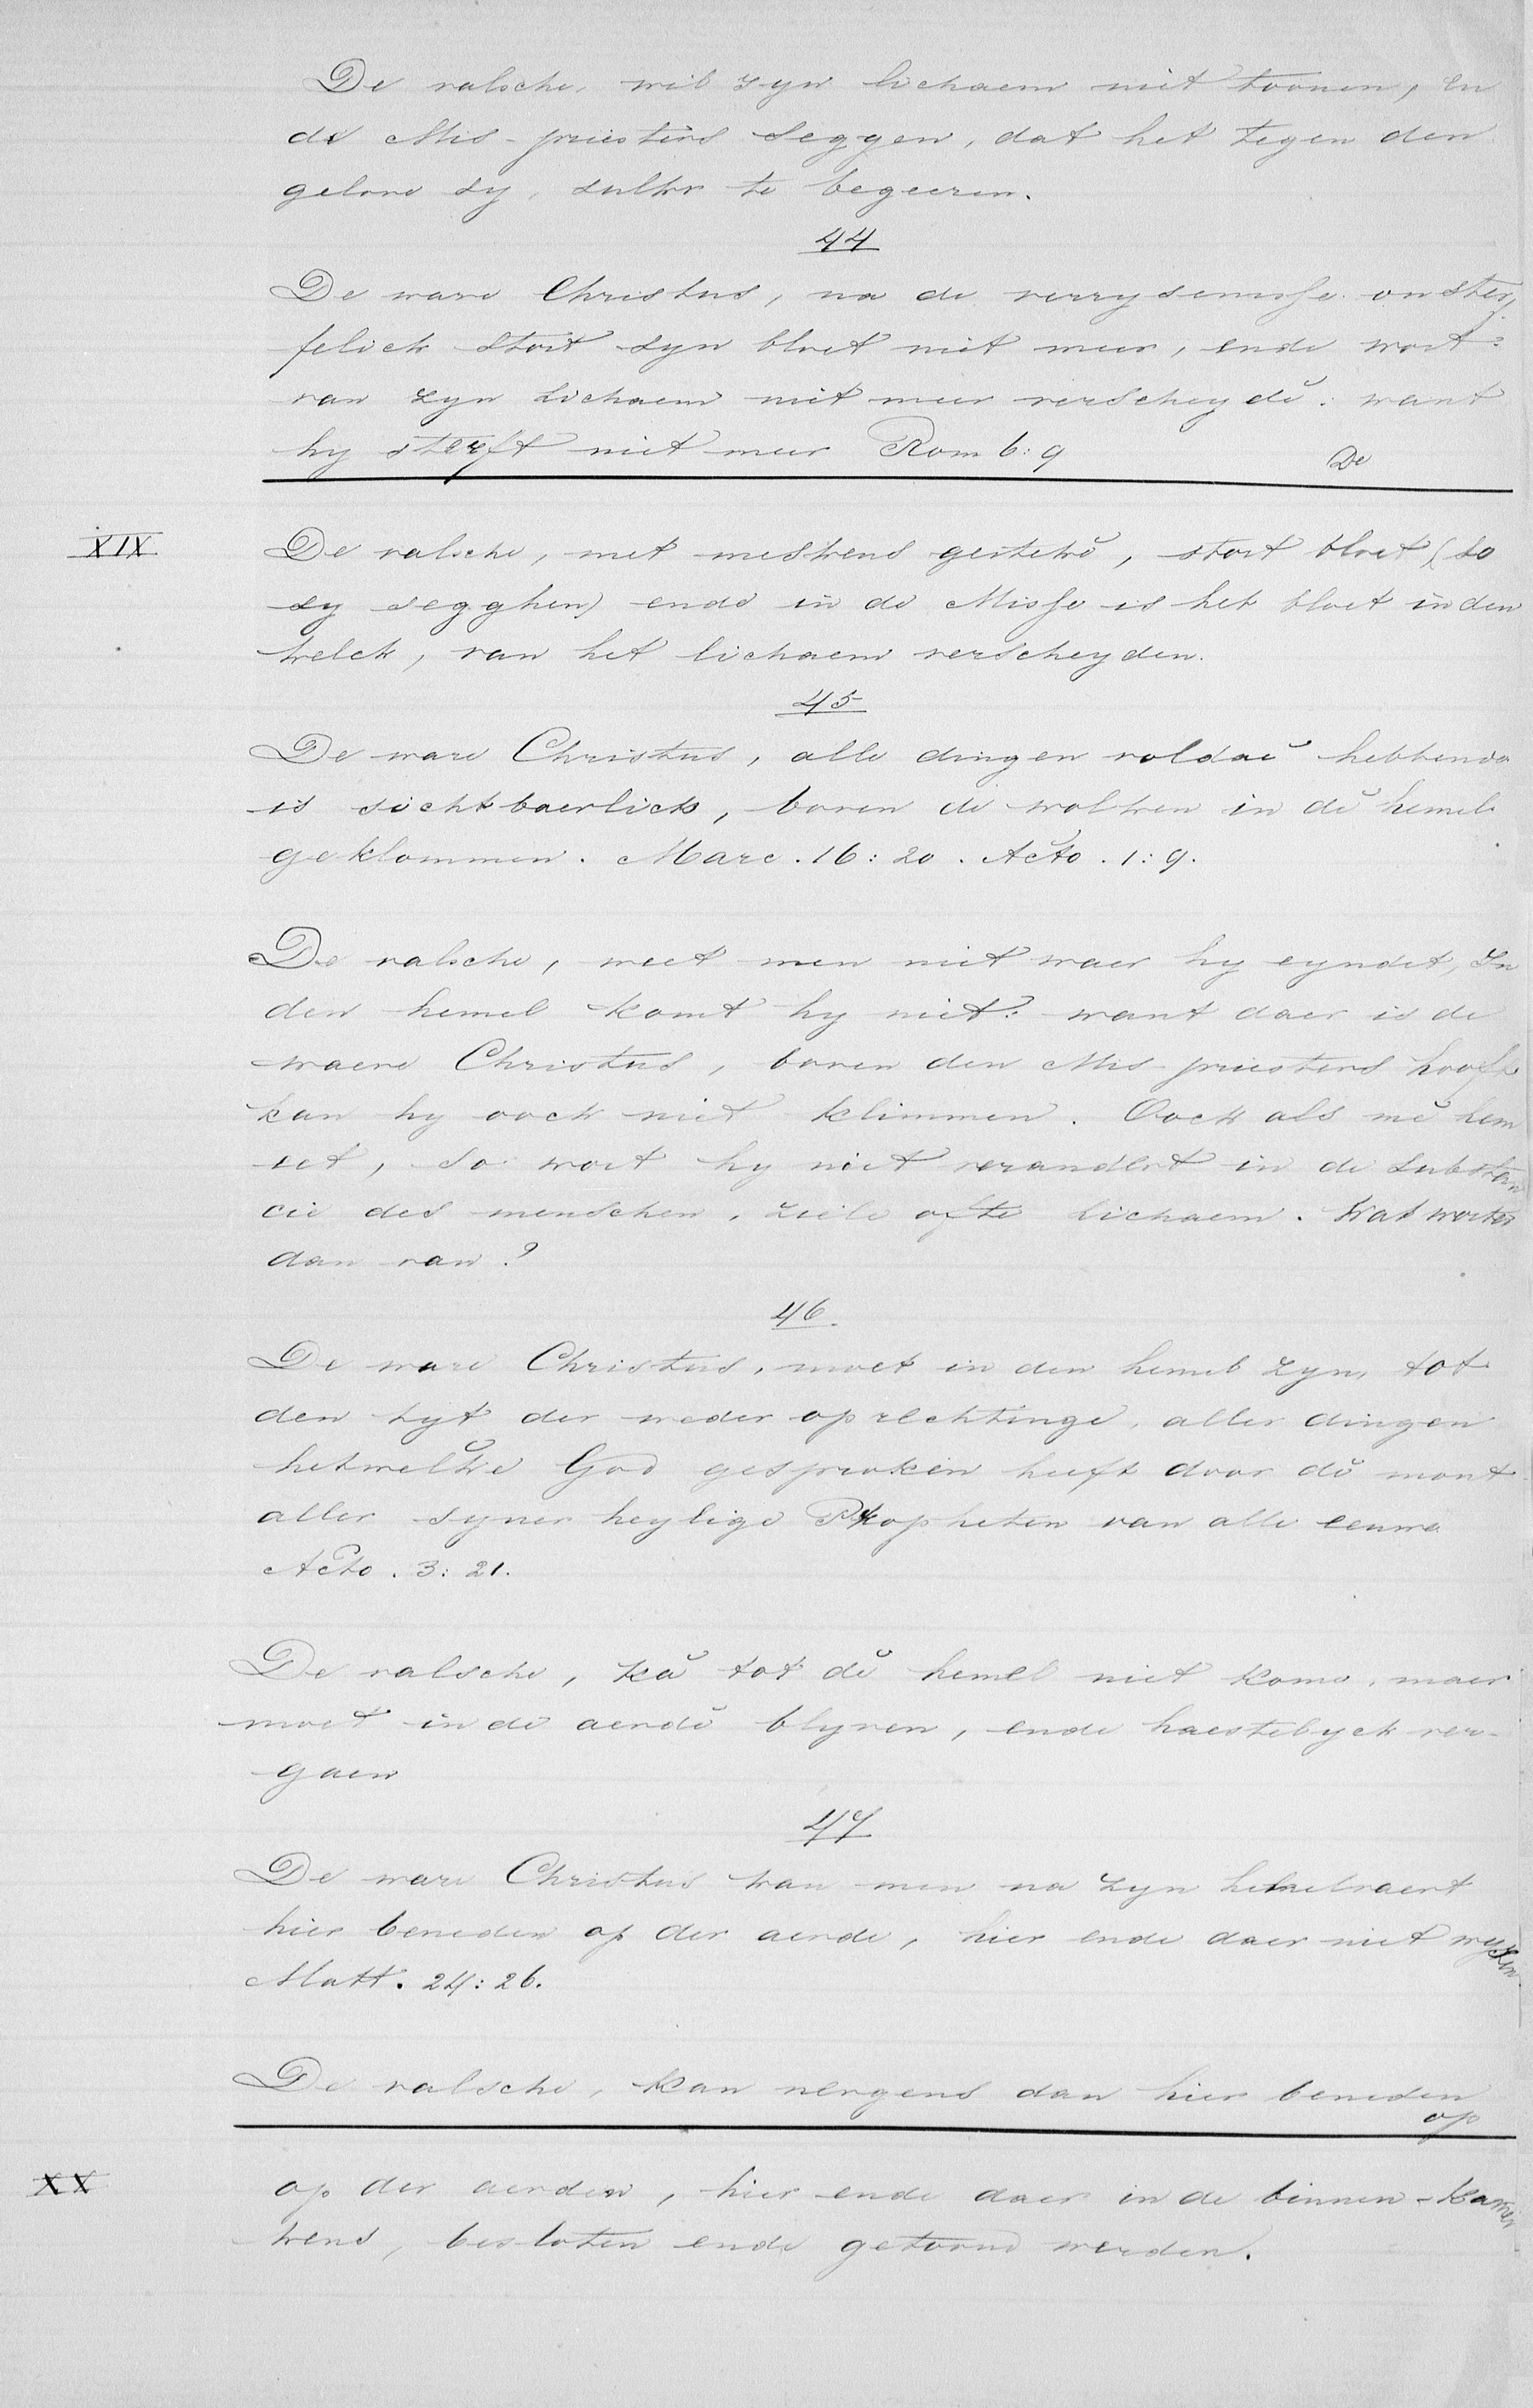 De valsche, wil zyn lichaem niet toonen, en
de Mis-priesters seggen, dat het tegen den
gelove sy, sulkx te begeeren.
44
De ware Christus, na de verrysenisse onster,
felick stort syn bloet niet meer, ende wort
van zyn lichaem niet meer verscheydē: want
hy sterft niet meer Rom 6:9
De
XIX
De valsche, met meskens gestekē, stort bloet (so
sy segghen) ende in de Misse is het bloet in den
kelck, van het lichaem verscheyden.
45
De ware Christus, alle dingen voldaē hebbende
is sichtbaerlick, boven de wolken in dē hemel
geklommen. Marc. 16:20. Acto. 1:9.
De valsche, weet men niet waer hy eyndet, In
den hemel komt hy niet: want daer is de
waere Christus, boven den Mis-priesters hooft
kan hy oock niet klimmen. Oock als mē hem
eet, so wort hy niet verandert in de substan
cie des menschen, ziele ofte lichaem. Wat worter
dan van?
46.
De ware Christus, moet in den hemel zyn, tot
den tyt der weder oprechtinge, aller dingen
hetwelke God gesproken heeft door dē mont
aller syner heylige Propheten van alle eeuwe
Acto. 3:21.
De valsche, kā tot dē hemel niet kome, maer
moet in de aerdē blyven, ende haestelyck ver-
gaen
47
De ware Christus kan men na zyn hemelvaert
hier beneden op der aerde, hier ende daer niet wysen
Matt. 24:26.
De valsche, kan nergens dan hier beneden
op
XX
op der aerden, hier ende daer in de binnen-kamer
kens, besloten ende getoond werden.